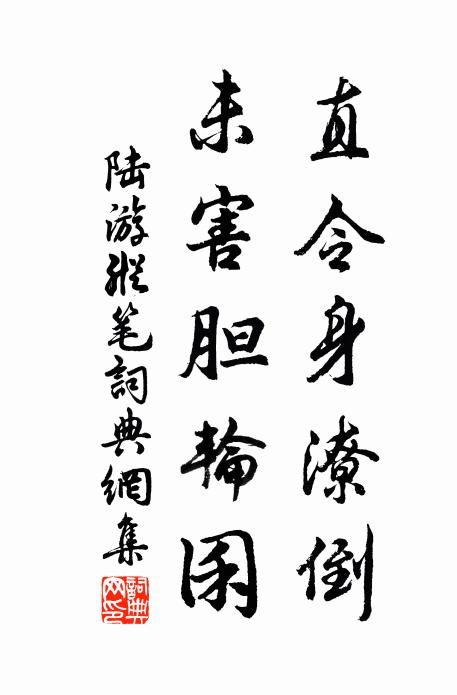 直令身潦倒
未害胆輪囷
陆游縱笔詞典網集
詞典
网印